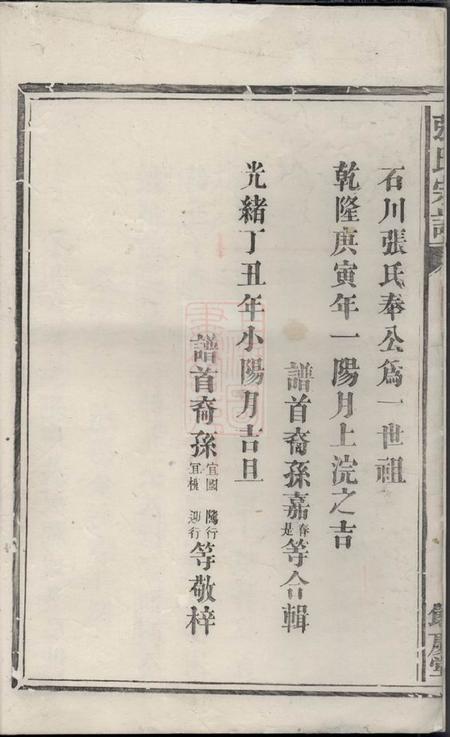 張氏宗譜
石川張氏奉公爲一世祖
乾隆庚寅年一陽月上浣之吉
譜首裔孫嘉春是等合輯
光緒丁丑年小陽月吉旦
譜首裔孫宜國宜桃隆行迎行等敬梓
慶堂